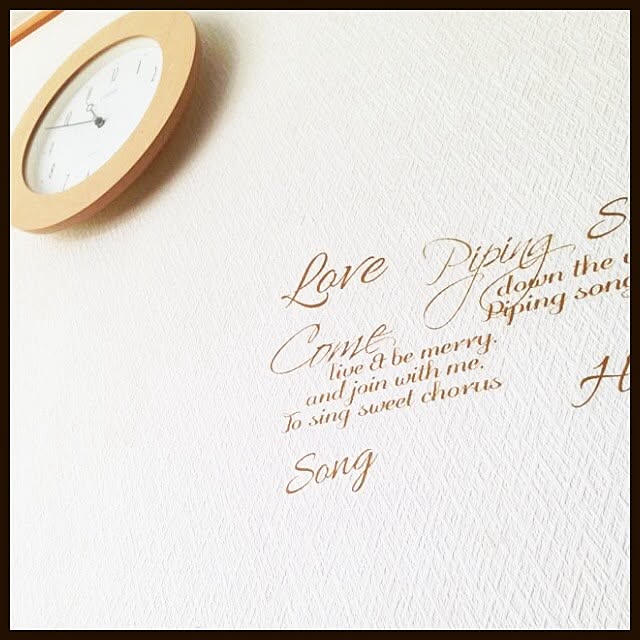 Love Piping
down the
Piping song
Come
live & be merry.
and join with me.
To sing sweet chorus
Song